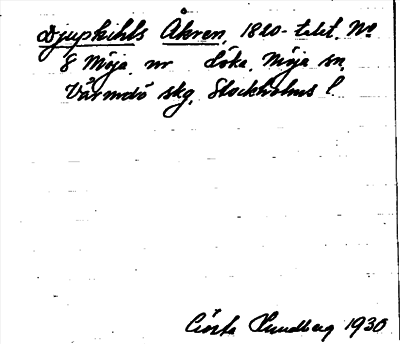 Djupkihls Åkren, 1820-talet. No
8 Möja nr Löka, Möja sn,
Värmdö skg, Stockholms l.
Gösta Lundberg 1930